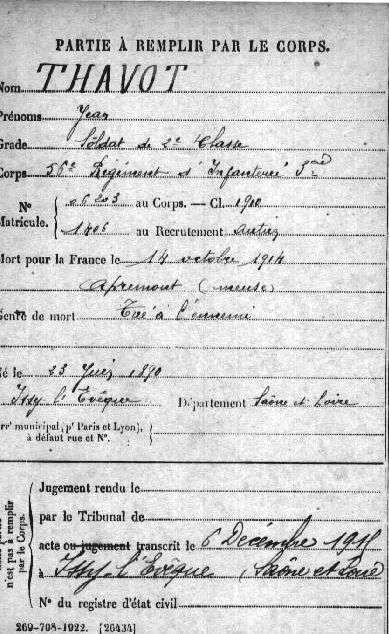 PARTIE À REMPLIR PAR LE CORPS.
Nom THAVOT
Prénoms Jean
Grade Soldat de 2e Classe
Corps 56e Régiment d'Infanterie
No
Matricule.
au Corps. — Cl. 1910
au Recrutement Autun
Mort pour la France le 14 octobre 1914
Apremont (meuse)
Genre de mort Tué à l'ennemi
é le 23 Juin 1890
Issy l'Evêque Département Saône et Loire
rr' municipal, p' Paris et Lyon),
à défaut rue et No.
n'est pas à remplir
par le Corps.
Jugement rendu le
par le Tribunal de
acte ou jugement transcrit le 6 Décembre
à Issy-l'Evêque (Saône et Loire
No du registre d'état civil
269-708-1922. [26434]